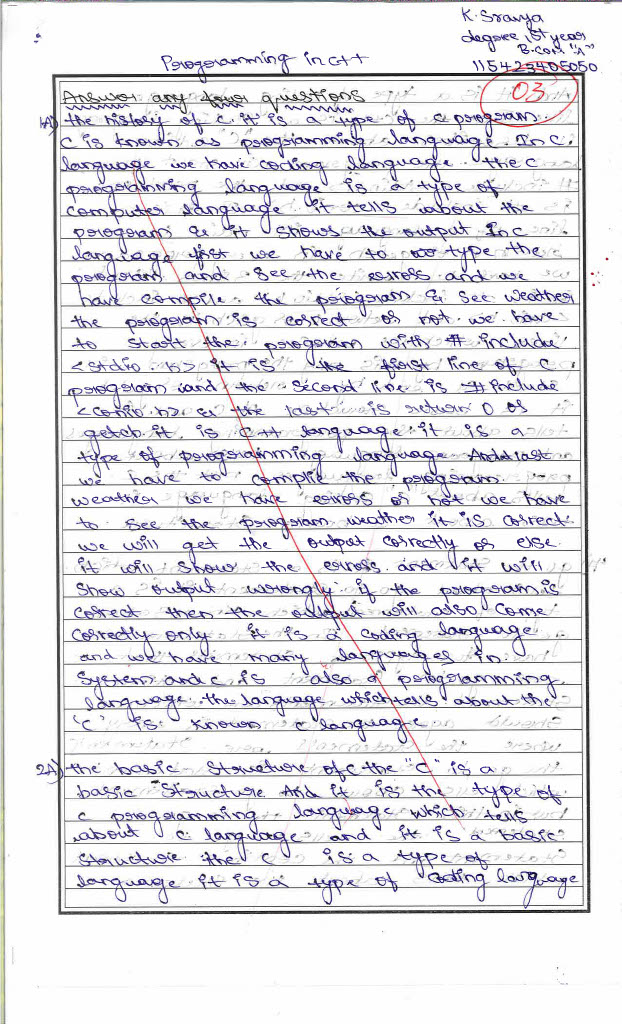 K. Sravya
degree 1st year
B.com "A"
Programming in c++
115423405050
Answer any four questions
03
1A) the history of c. it is a type of c program.
C is known as programming language. In C.
language we have coding language. the c
programming language is a type of
computer language it tells about the
program & it shows the output In c
language first we have to type the
program and see the errors and we
have compile. the program & see weather
the program is correct or not we have
to start the program with # include
<stdio.h> it is the first line of c
program and the second line is #include
<conio.h> & the last is return 0 or
getch it is c++ language it is a
type of programming language. And last
we have to complie the program.
weather we have errors or not we have
to see the program weather it is correct.
we will get the output correctly or else
it will show the errors. and it will
show output wrongly if the program is
correct then the output will also come
correctly only it is a coding language
and we have many languages in.
System and c is also a programming
language. the language which tells about the
"C" is known c language
2A) the basic Structure of c the "C" is a
basic Structure And it is the type of
c programming language which tells
about c language and it is a basic
structure the c is a type of
language it is a type of coding language